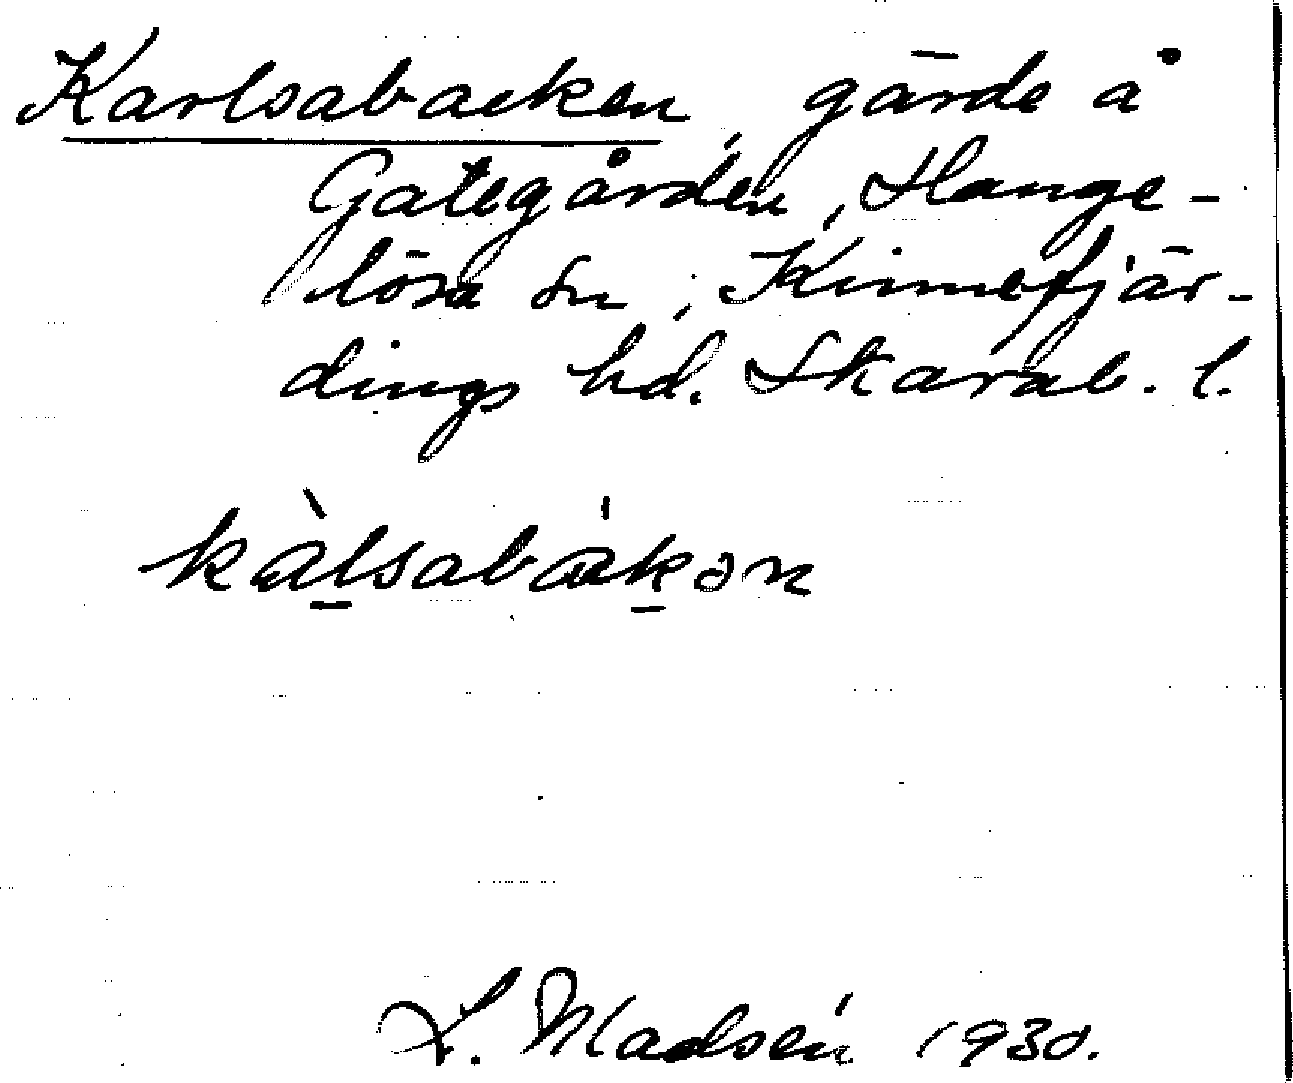 Karlsabacken, gärde å
Gategården, Hange-
lösa sn, Kinnefjär-
dings hd. Skarab. l.
kàl̠sabák̠ən
L. Madsén 1930.